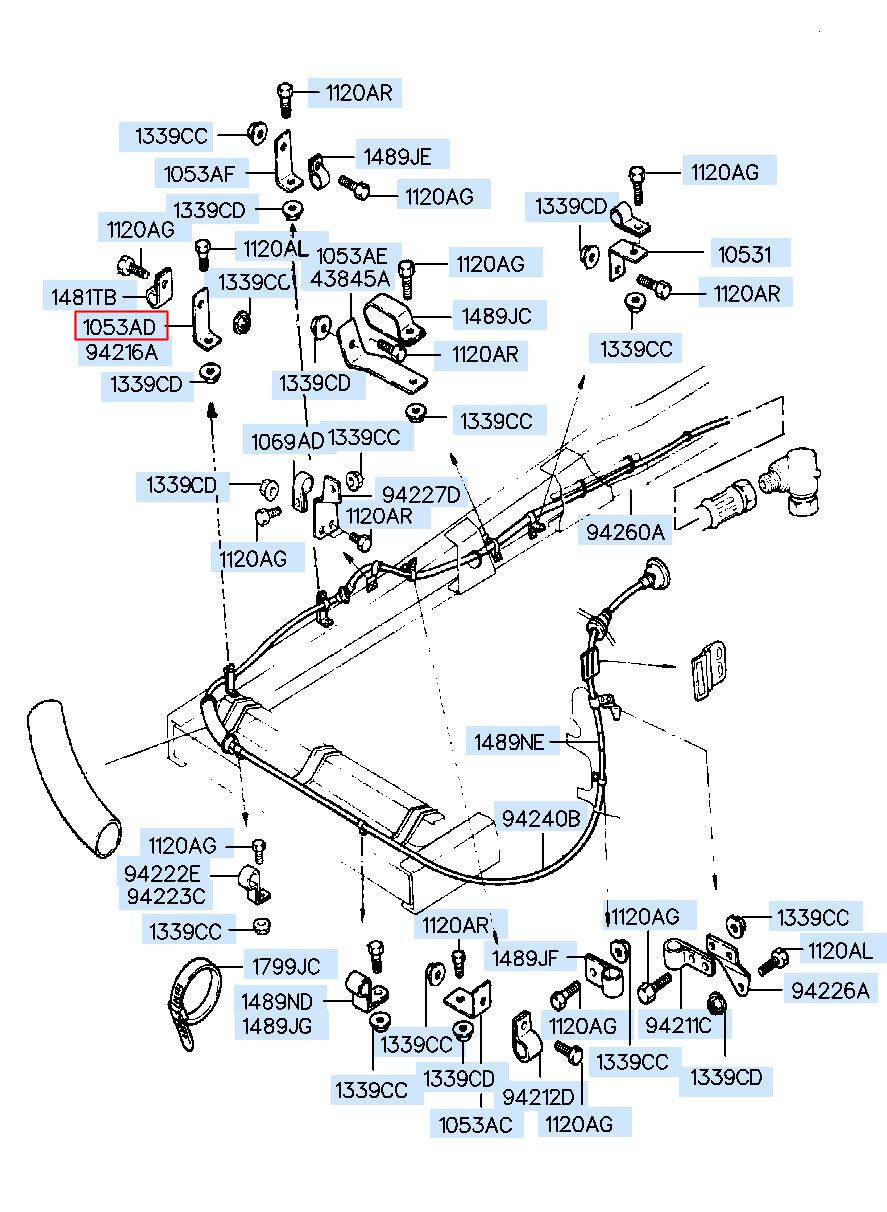 1120AR
1339CC
1489JE
1053AF
1120AG
1120AG
1339CD
1339CD
1120AG
1120AL
1053AE
10531
43845A
1120AG
1339CC
1481TB
1120AR
1489JC
1053AD
94216A
1339CC
1120AR
1339CD
1339CD
1339CC
1069AD
1339CC
1339CD
94227D
1120AR
94260A
1120AG
1489NE
94240B
1120AG
94222E
94223C
1339CC
1120AG
1339CC
1120AR
1120AL
1489JF
1799JC
94226A
1489ND
1489JG
1120AG
94211C
1339CC
1339CC
1339CD
1339CD
1339CC
94212D
1053AC
1120AG